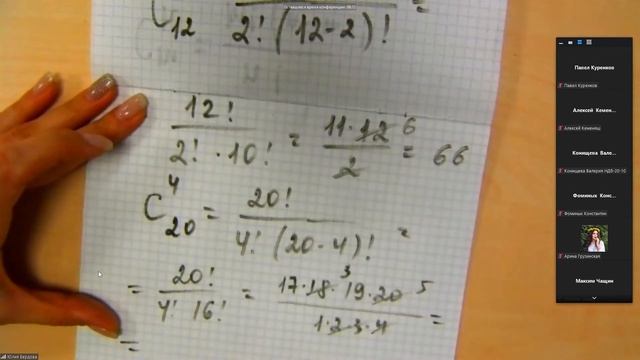 C₁₂ 2!(12-2)! =
12! / 2!·10! = 11·12 6 / 2 = 66
C⁴₂₀ = 20! / 4!(20-4)! =
= 20! / 4! 16! = 17·18·3 19·20 5 / 1·2·3·4 =
=
Павел Куренков
Павел Куренков
Алексей Кемен...
Алексей Кеменяш
Конищева Вале...
Конищева Валерия НДБ-20-10
Фоминых Конс...
Фоминых Константин
Арина Грузинская
Максим Чащин
Юлия Бердова